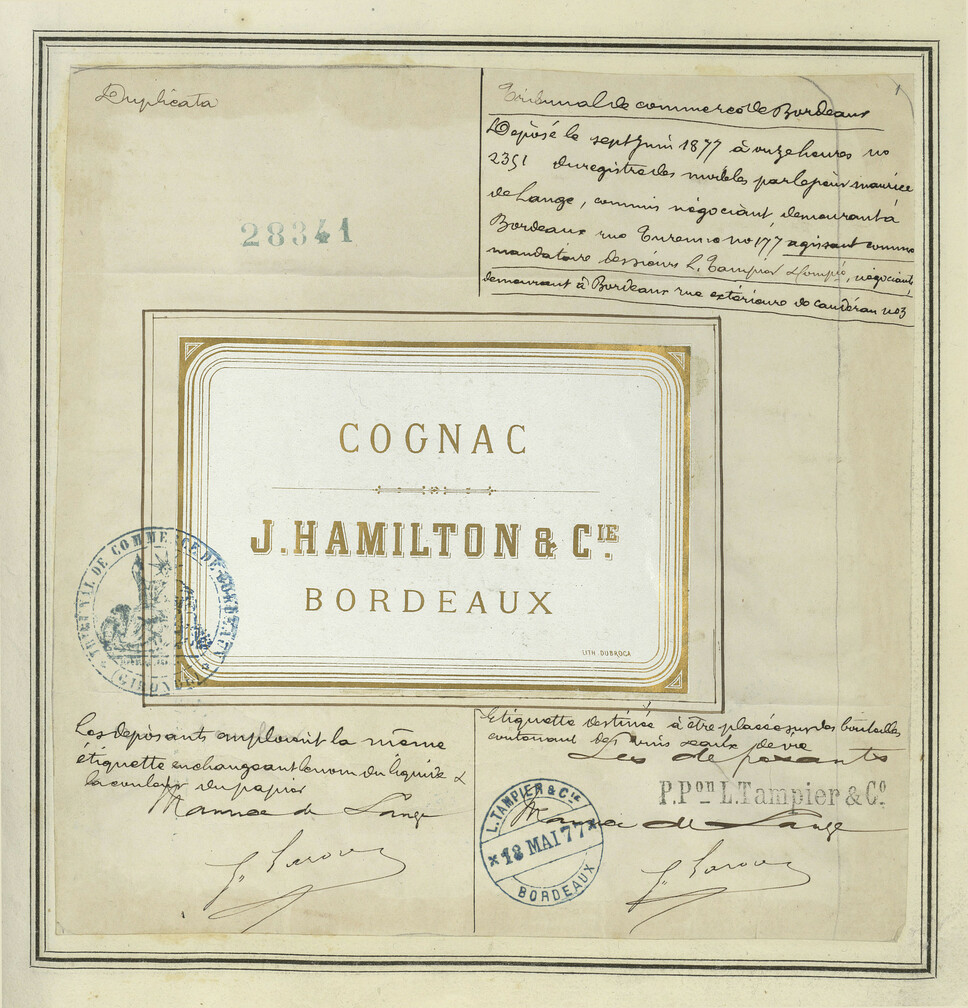 Duplicata
28341
1
Tribunal de commerce de Bordeaux
Déposé le sept Juin 1877 à onze heures no
2351 du registre des modèles par le sieur maurice
de Lange, commis négociant demeurant à
Bordeaux rue Turenne no 177 agissant comme
mandataire des sieurs L. Tampier & Compie, négociants,
demeurant à Bordeaux rue extérieure de caudéran no 3
COGNAC
J. HAMILTON & CIE.
BORDEAUX
LITH. DUBROCA
TRIBUNAL DE COMMERCE DE BORDEAUX
(GIRONDE)
Les déposants emploient la même
étiquette en changeant le nom du liquide &
la couleur du papier
Maurice de Lange
Etiquette destinée à être placée sur des bouteilles
contenant des vins & eaux de vie
Les déposants
P. Pon L. Tampier & Co
Maurice de Lange
L. TAMPIER & Cie
* 18 MAI 77 *
BORDEAUX